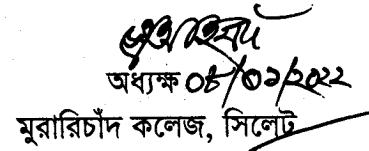 অধ্যক্ষ ০৪/০১/২০২২
মুরারিচাঁদ কলেজ, সিলেট